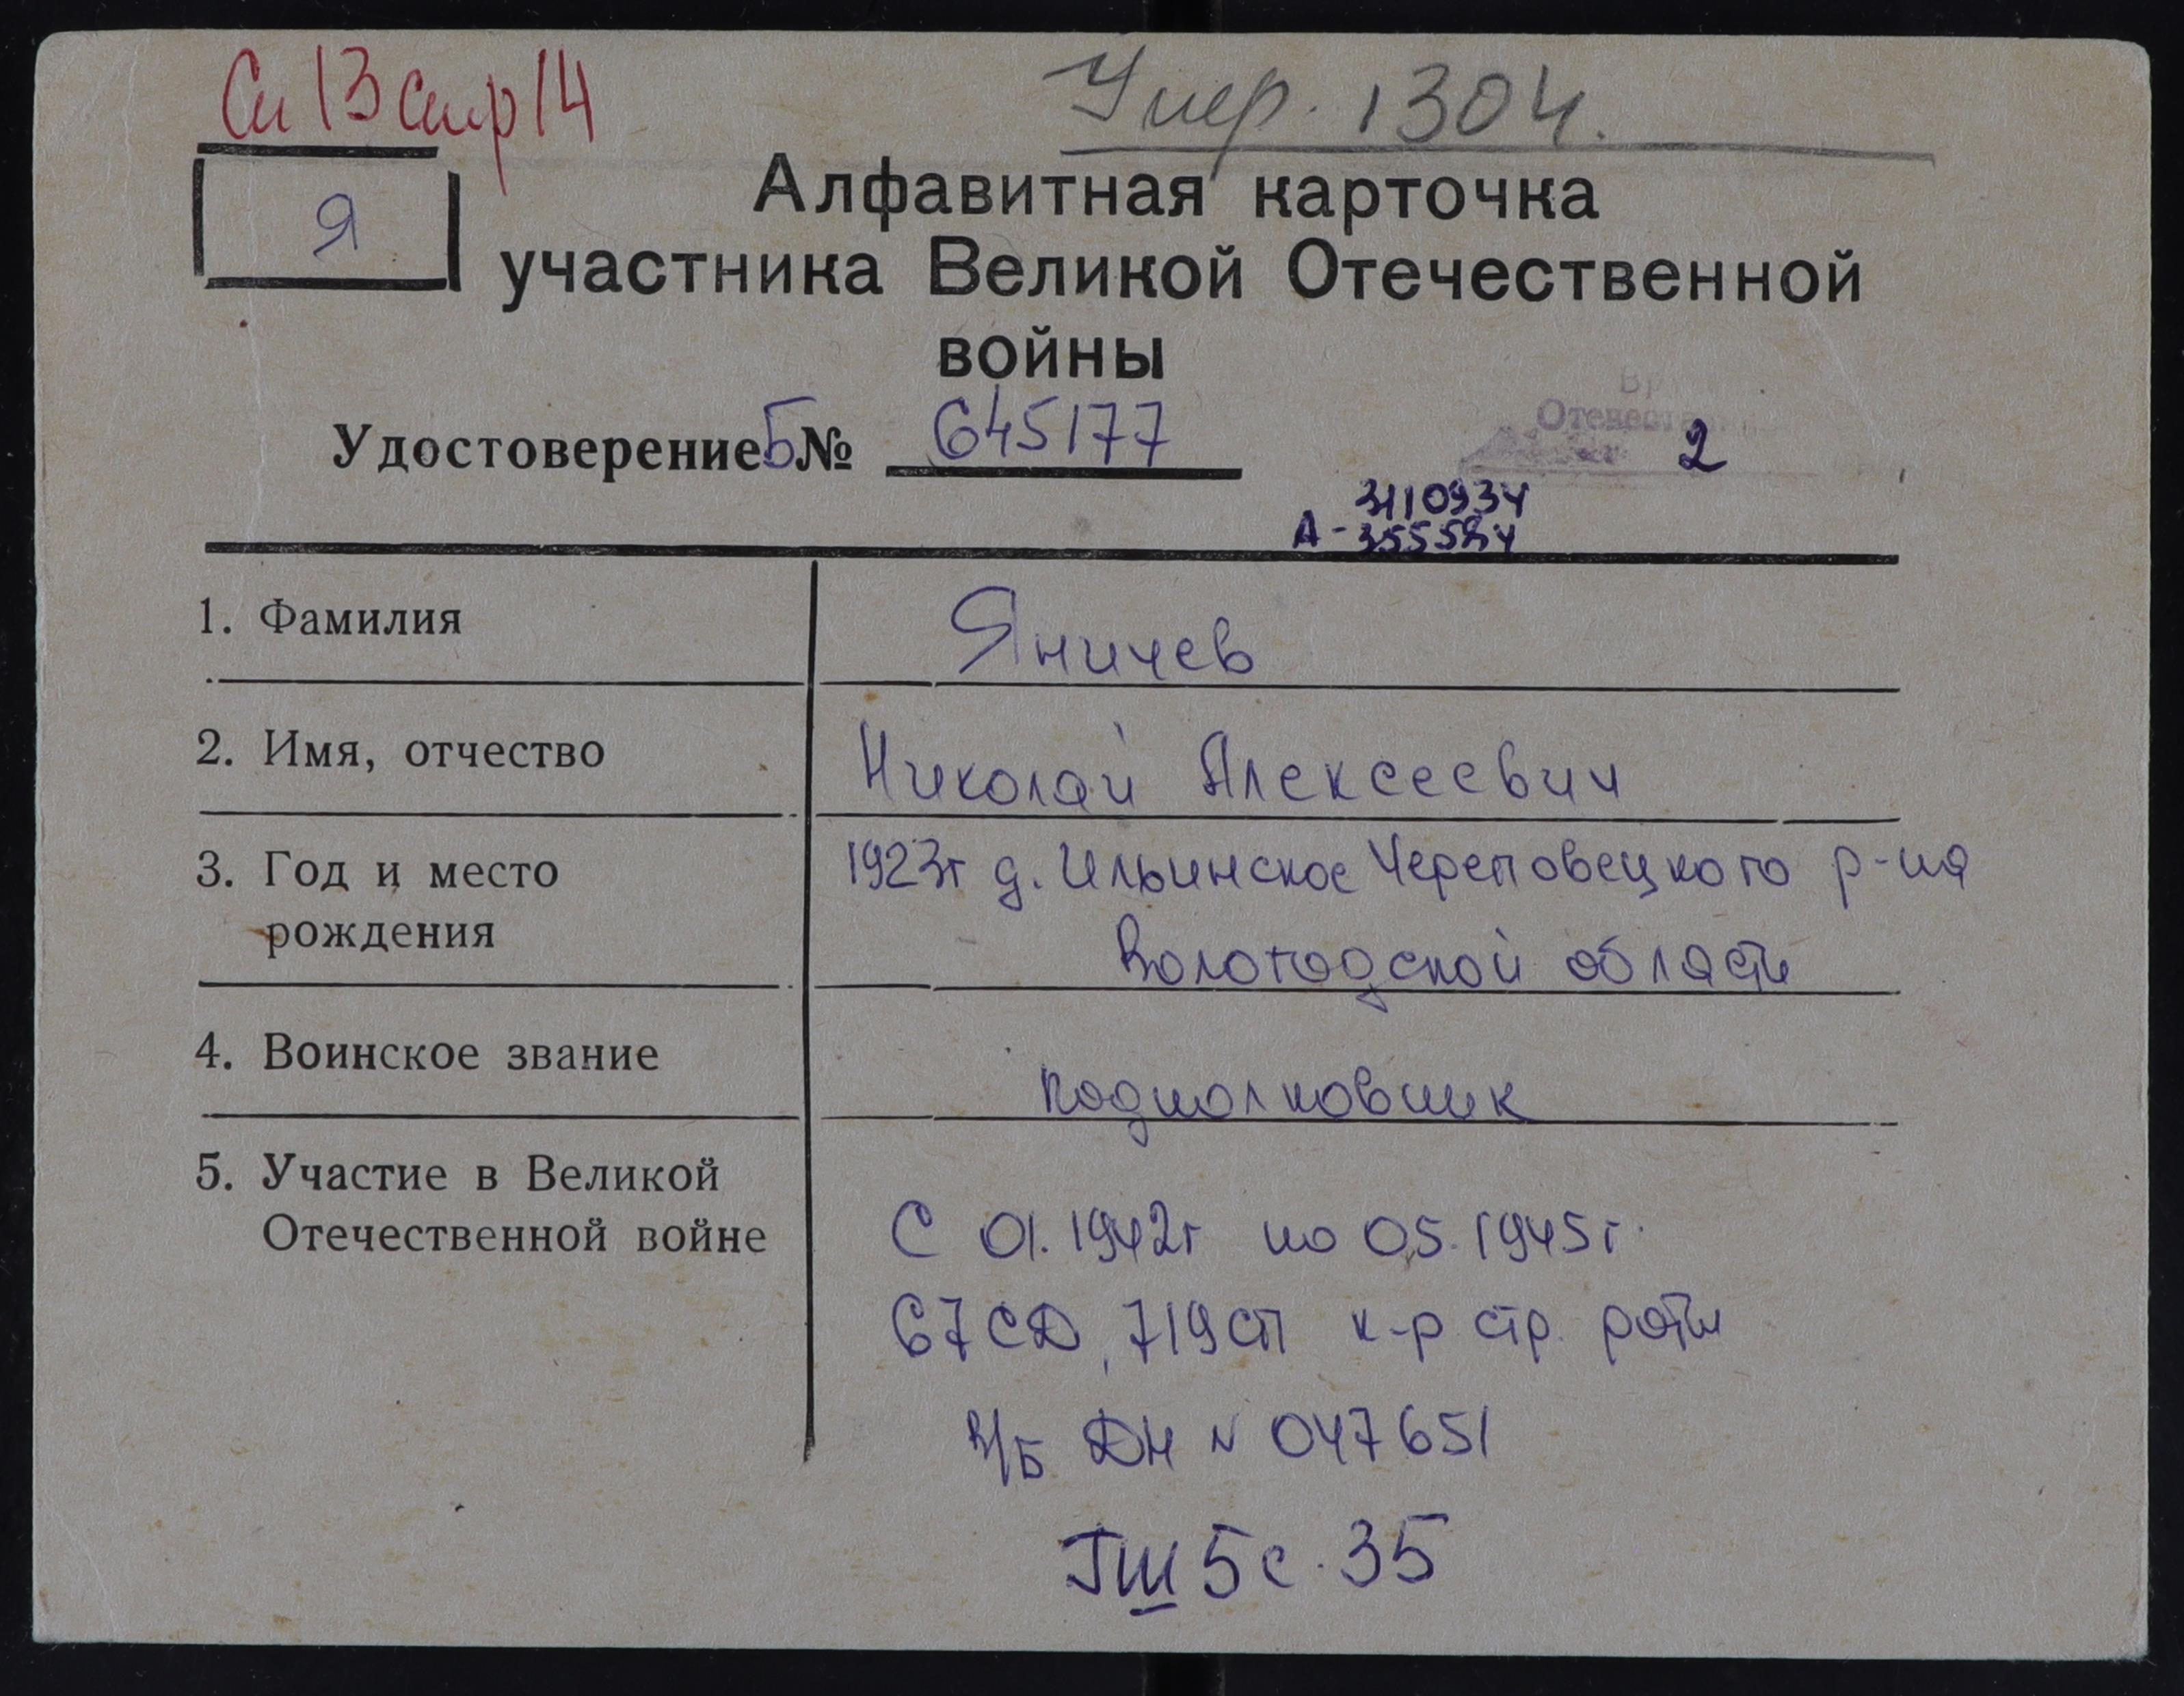 Сп 13 стр 14
Умер. 1304.
Я
Алфавитная карточка
участника Великой Отечественной
войны
Отечеств
Удостоверение Б № 645177
2
3110934
А-355584
1. Фамилия Яничев
2. Имя, отчество Николай Алексеевич
3. Год и место 1923г д. Ильинское Череповецкого р-на
рождения Вологодской области
4. Воинское звание подполковник
5. Участие в Великой
Отечественной войне С 01.1942г по 05.1945г.
67СД, 719сп к-р стр. роты
в/б ДН № 047651
ТШ 5 с. 35